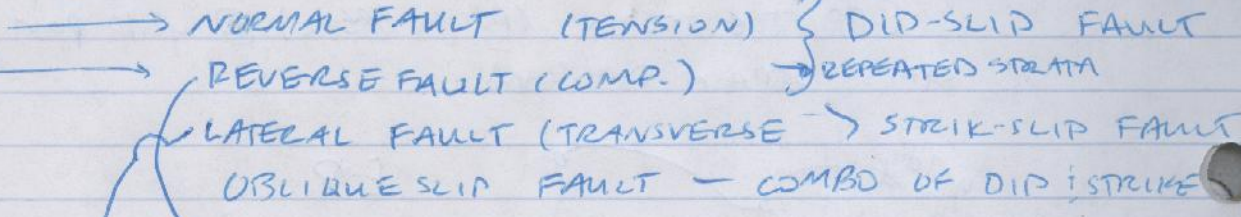 → NORMAL FAULT (TENSION) } DIP-SLIP FAULT
→ REVERSE FAULT (COMP.) → REPEATED STRATA
LATERAL FAULT (TRANSVERSE > STRIK-SLIP FAULT
OBLIQUE SLIP FAULT - COMBO OF DIP & STRIKE